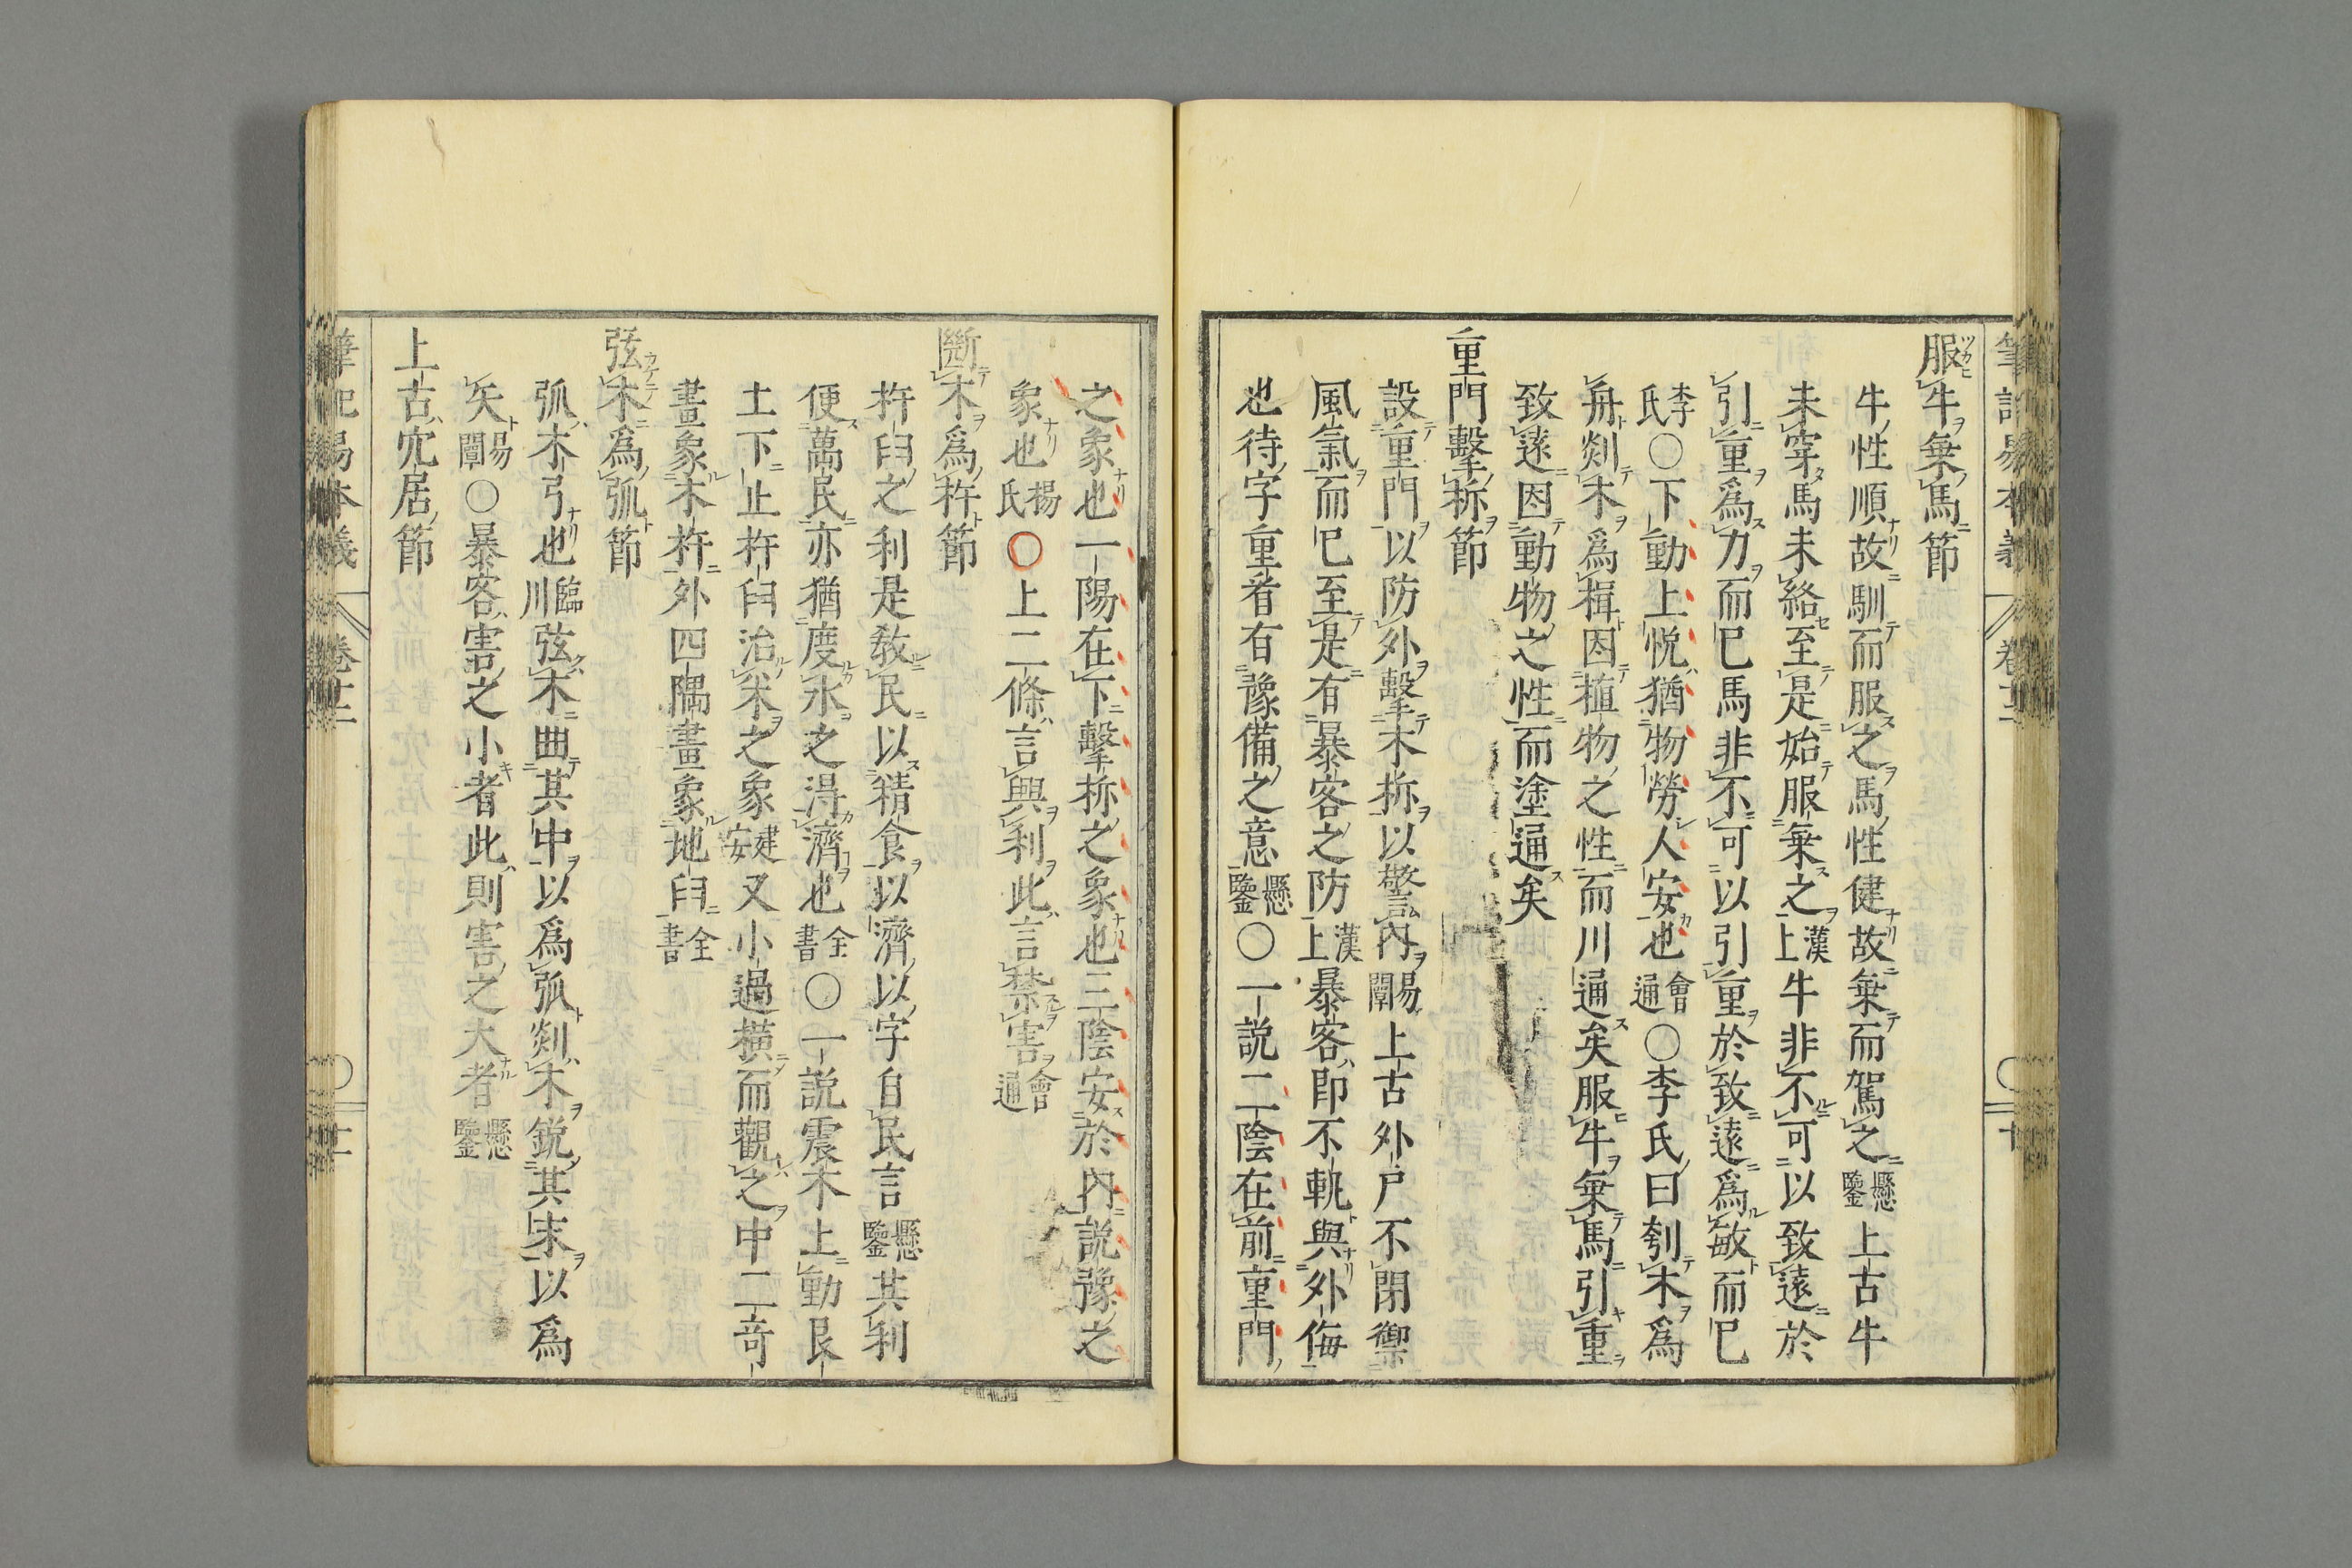 服牛乗馬節
牛性順故馴而服之馬性健故乗而駕之懸鑒上古牛
未穿馬未絡至是始服乗之漢上牛非不可以致遠於
引重爲力而已馬非不可以引重於致遠爲敏而已
李氏〇下動上悦猶物勞人安也會通〇李氏曰刳木爲
舟剡木爲楫因植物之性而川通矣服牛乗馬引重
致遠因動物之性而塗通矣
重門擊柝節
設重門以防外擊木柝以警內易闡上古外戸不閉禦
風氣而已至是有暴客之防漢上暴客即不軌與外侮
也待字重看有豫備之意懸鑒〇一説二陰在前重門
之象也一陽在下擊柝之象也三陰安於內説豫之
象也楊氏〇上二條言興利此言禁害會通
斷木爲杵節
杵臼之利是敎民以精食以濟以字自民言懸鑒其利
便萬民亦猶度水之淂濟也全書〇一説震木上動艮
土下止杵臼治米之象建安又小過横而觀之中二竒
畫象木杵外四隅畫象地臼全書
弦木爲弧節
弧木弓也臨川弦木曲其中以爲弧剡木鋭其末以爲
矢易闡〇暴客害之小者此則害之大者懸鑒
上古穴居節